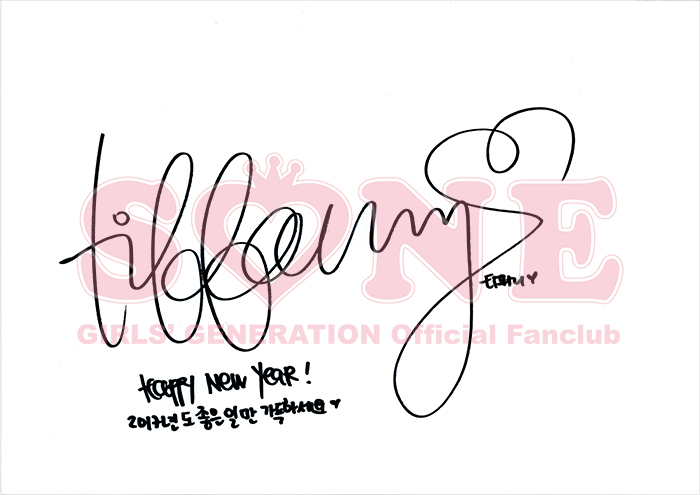 tiffany
티파니♥
SONE
GIRLS' GENERATION Official Fanclub
HAPPY NEW YEAR!
2017년도 좋은 일만 가득하세요♥